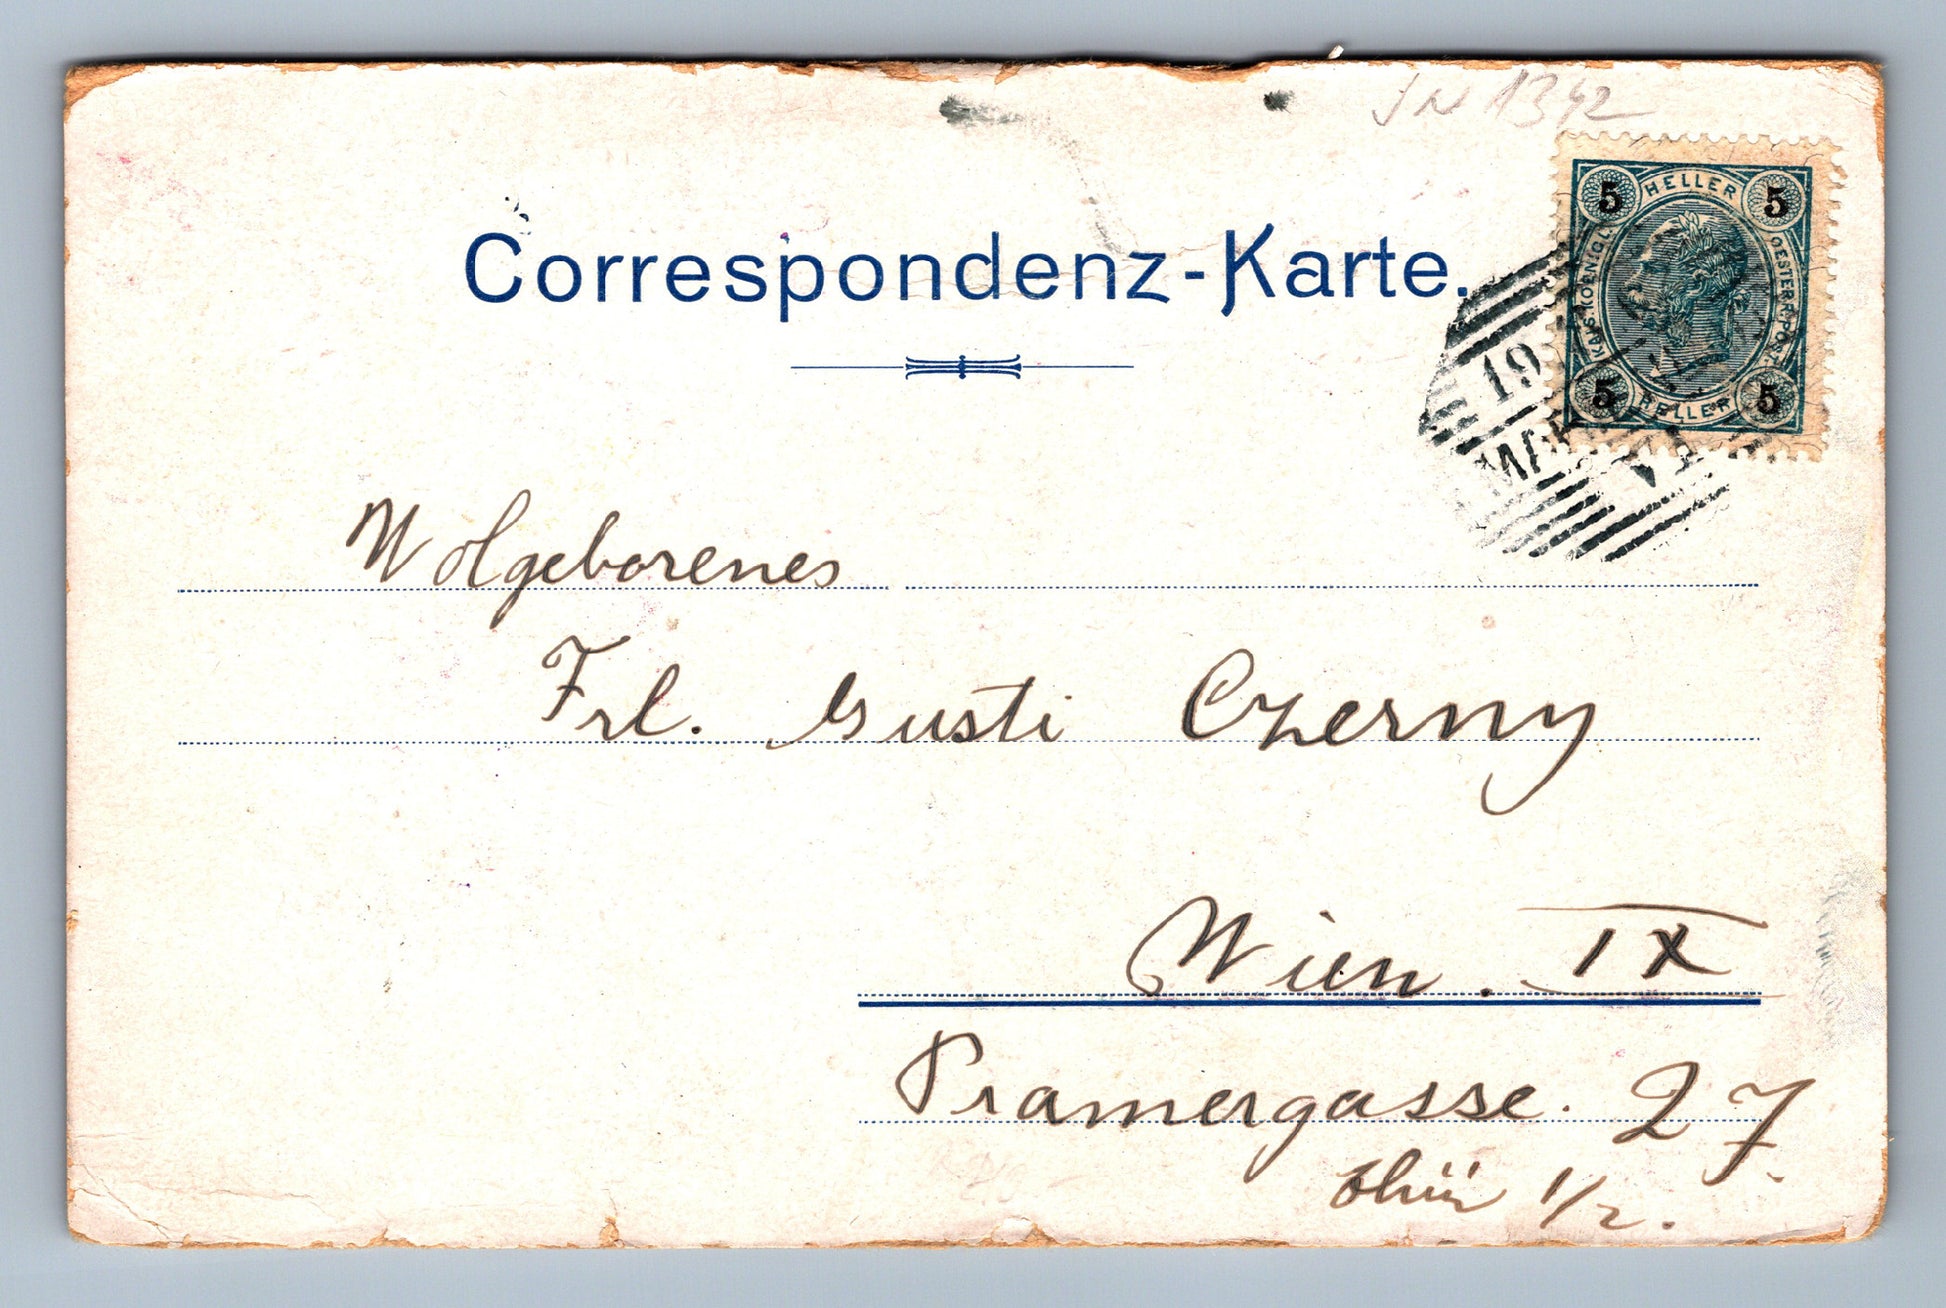 JN 1342
5 HELLER 5
KAIS. KOENIGL. OESTERR. POST.
5 HELLER 5
19
Correspondenz-Karte.
Wolgeborenes
Frl. Gusti Czerny
Wien. IX
Pramergasse. 27.
thür 1/2.